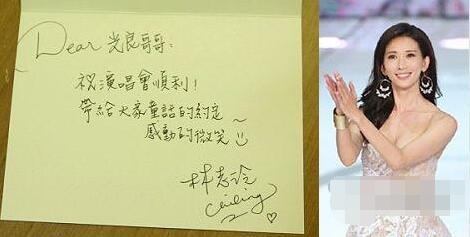 Dear 光良哥哥:
祝演唱會順利!
帶給大家童話的約定
感動的微笑~
林志玲
Chiling